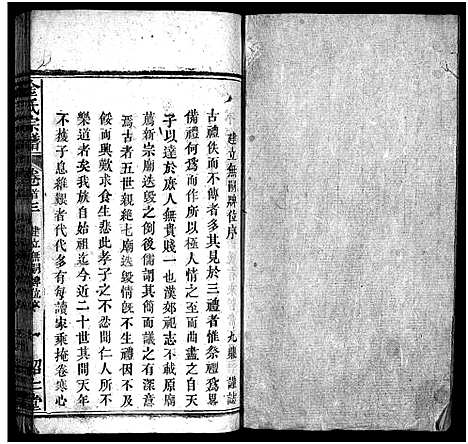 建立無嗣牌位序
九鼎 謹誌
古禮佚而不傳者多其見於三禮者惟祭禮為畧
備禮何為而作所以順人情之大至而曲盡之自天
子以達於庶人無貴賤一也漢郊祀志不載原廟
舊新宗廟迭毀之例後儒謂其簡而議之有深意
焉古者五世親絶七廟迭毀情既不生禮因有盡
倐而興歎求食生悲此孝子之不忍聞仁人所不
樂道者矣我族自始祖迄今近二十世其間天年
不獲子息維艱者代代多有每讀家乘掩卷寒心
金氏宗譜
卷首三 建立無嗣牌位序 十 昭仁堂